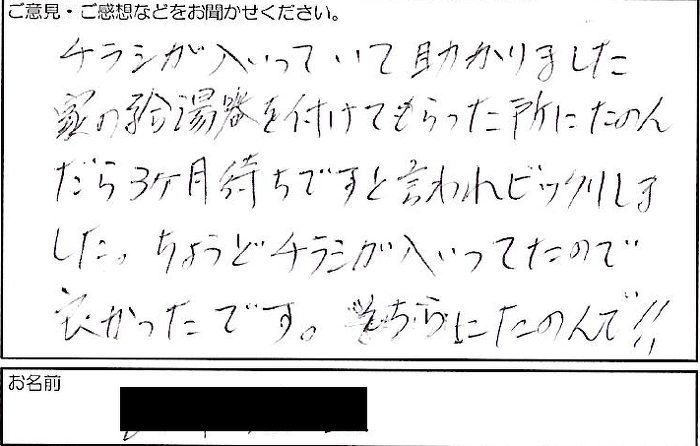 ご意見・ご感想などをお聞かせください。
チラシが入いっていて助かりました
家の給湯器を付けてもらった所にたのん
だら3ケ月待ちですと言われビックリしま
した。ちょうどチラシが入いってたので
良かったです。そちらにたのんで!!
お名前